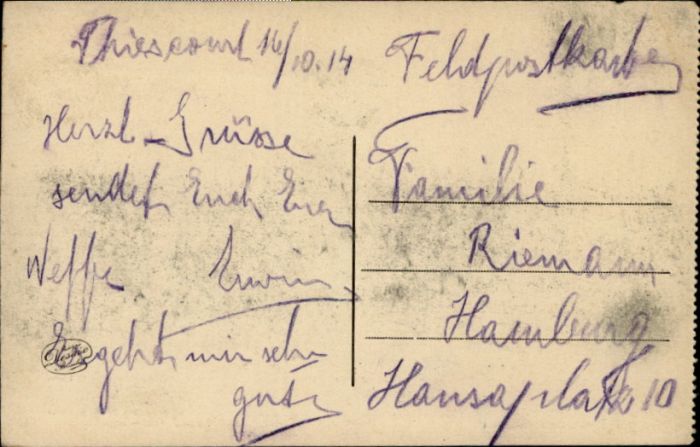 Thiescourt 16/10.14
Feldpostkarte
Herzl. Grüsse
sendet Euch Euer
Neffe Erwin
Es geht mir sehr
gut
Familie
Riemann
Hamburg
Hansaplatz 10